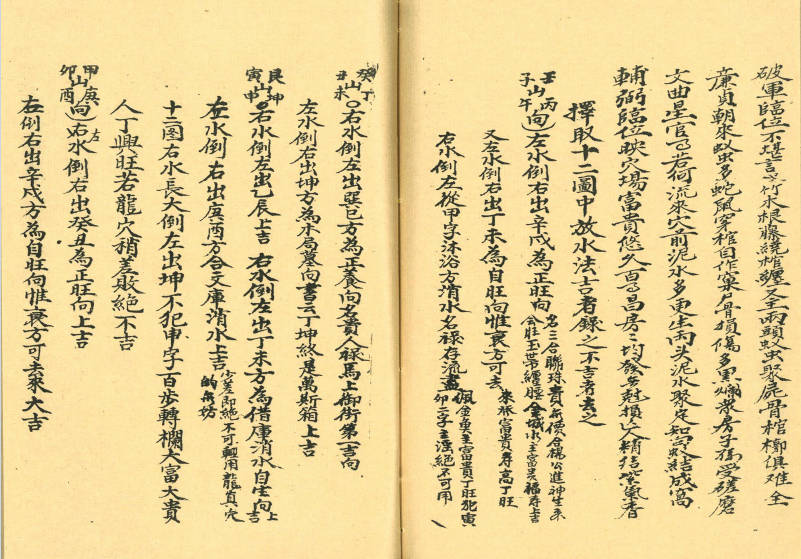 破軍臨位不堪言竹木根藤繞棺纏又主兩頭蚁虫聚屍骨棺槨俱难全
廉貞朝來蚁虫多蛇鼠穿棺自作窠尸骨損傷多黑爛衆房子孫受磋磨
文曲星官若何流來穴前泥水多更生兩头泥水聚定知蚁結成窩
輔弼臨位映穴場富貴悠久百昌房房均發
擇取十二圖中放水法吉者錄之不吉者去之
壬丙
子山午向左水倒右出辛戌為正旺向名三合聯珠貴無價合楊公進神生來
公壮玉帶纏腰金城水主富貴福寿上吉
又左水倒右出丁未為自旺向惟衰方可去
來 富貴寿高丁旺
右水倒左從甲字沐浴方消水名禄存流盡佩金魚主富貴丁旺犯寅
卯二字主淫絕不可用
癸丁
丑山未右水倒左出巽巳方為正養向名貴人禄馬上御街第一吉向
左水倒右出坤方為木局墓向書云丁坤終是萬斯箱上吉
艮坤
寅山申右水倒左出乙辰上吉 右水倒左出丁未方為借庫消水自生向上吉
左水倒右出庚酉方合文庫消水上吉少差即絕不可輕用龍真穴
的無妨
十二图右水長大倒左出坤不犯申字百步轉欄大富大貴
人丁興旺若龍穴稍差敗絕不吉
甲庚
卯山酉向右水倒左出癸丑為正旺向上吉
左倒右出辛戌方為自旺向惟衰方可去來大吉